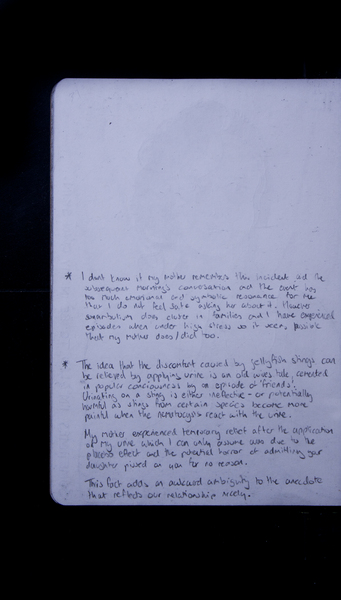 * I dont know if my Mother remembers this incident and the
subsequent morning's conversation and the event has
too much emotional and symbolic resonance for me
that I do not feel safe asking her about it. However
somnambulism does cluster in families and I have experienced
episodes when under high stress so it seems possible
that my mother does/did too.
* The idea that the discomfort caused by jellyfish stings can
be relieved by applying urine is an old wives tale, cemented
in popular conciousness by an episode of 'friends'.
Urinating on a sting is either ineffective - or potentially
harmful as stings from certain species become more
painful when the nematocysts react with the urine.
My mother experienced temporary relief after the application
of my urine which I can only assume was due to the
placebo effect and the potential horror of admitting your
daughter pissed on you for no reason.
This fact adds an awkward ambiguity to the anecdote
that reflects our relationship nicely.